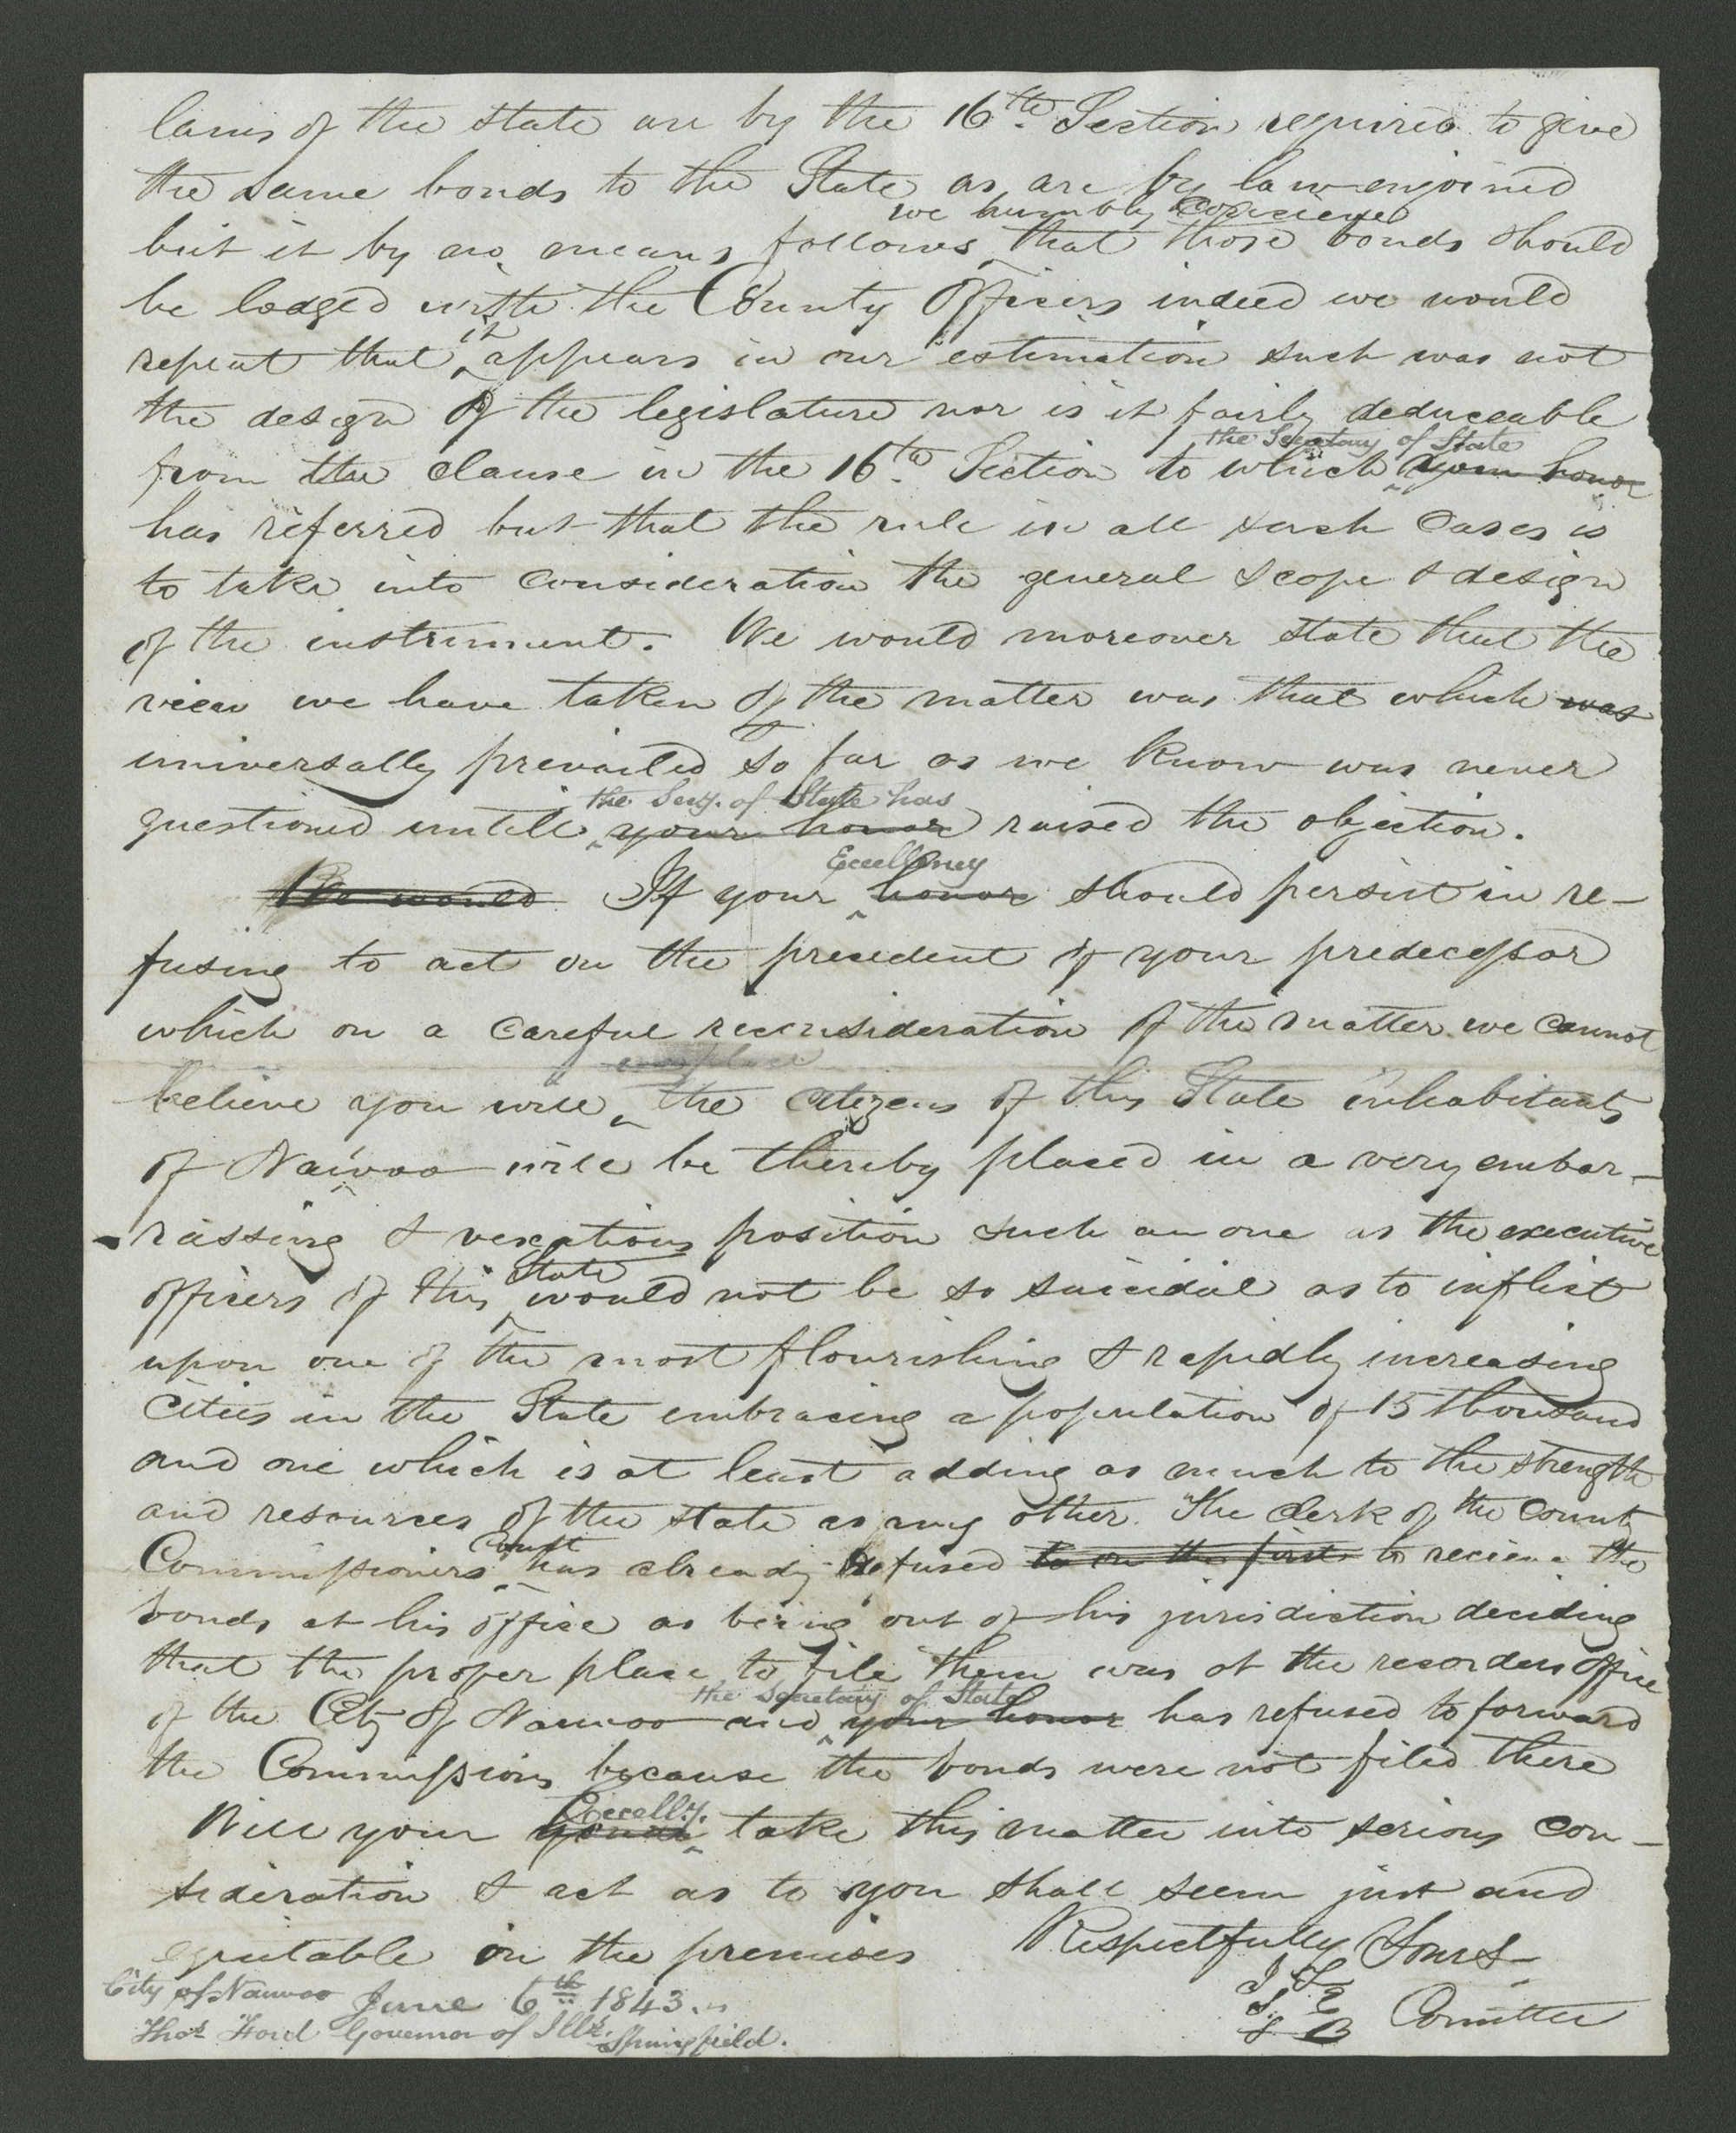 laws of the State are by the 16th Section required to give
the same bonds to the State as are by law enjoined
we humbly conceive
but it by no means follows that those bonds should
be lodged with the County Officers indeed we would
it
repeat that appears in our estimation such was not
the design of the legislature nor is it fairly deduceable
the Secretary of State
from the clause in the 16th Section to which your honor
has referred but that the rule in all such cases is
to take into consideration the general scope & design
of the instrument. We would moreover state that the
view we have taken of the matter was that which was
universally prevailed so far as we know was never
the Secy. of State has
questioned untill your honor raised the objection.
Excellency
We would If your honor should persist in re-
fusing to act on the precedent of your predecessor
which on a careful reconsideration of the matter we cannot
believe you will, the citizens of this State inhabitants
of Nauvoo will be thereby placed in a very embar-
rassing & vexatious position such an one as the executive
State
officers of this would not be so suicidal as to inflict
upon one of the most flourishing & rapidly increasing
cities in the State embracing a population of 15 thousand
and one which is at least adding as much to the strength
and resources of the state as any other. The clerk of the County
Court
Commissioners has already refused to on the first to recieve the
bonds at his office as being out of his jurisdiction deciding
that the proper place to file them was at the recorders office
the Secretary of State
of the City of Nauvoo and your honor has refused to forward
the Commissions because the bonds were not filed there
Excelly.
Will your honor take this matter into serious con-
sideration & act as to you shall seem just and
equitable in the premises Respectfully Yours
City of Nauvoo June 6th 1843.
Comittee
Thos Ford Governor of Ills. Springfield.